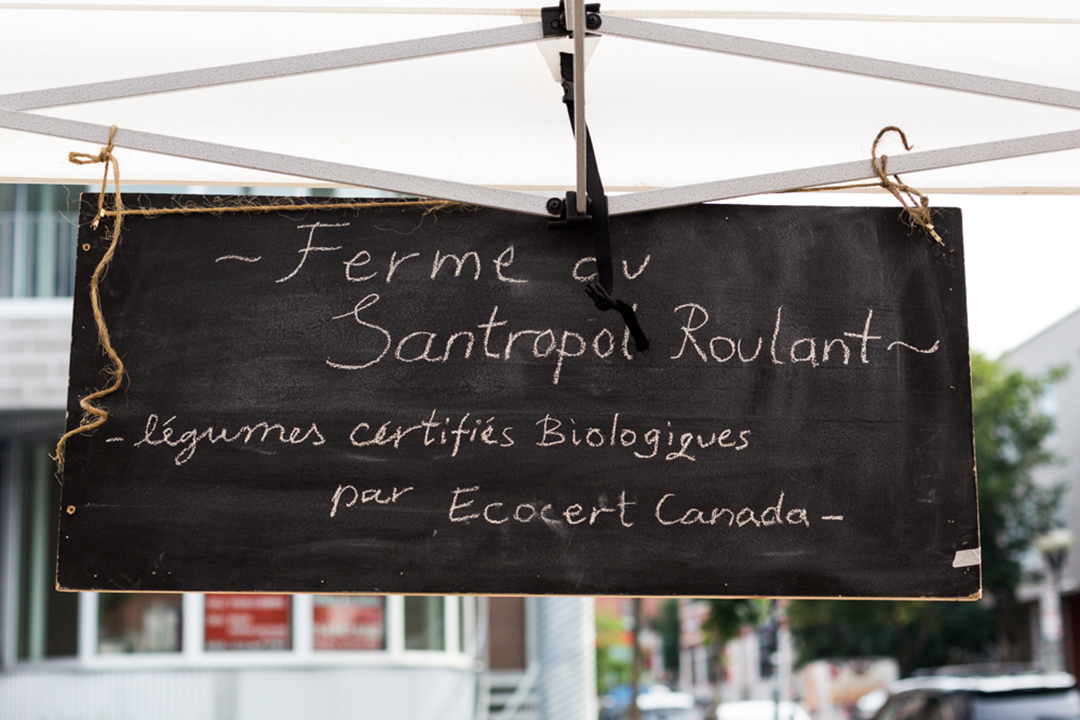 ~ Ferme du
Santropol Roulant ~
- légumes certifiés Biologiques
par Ecocert Canada -